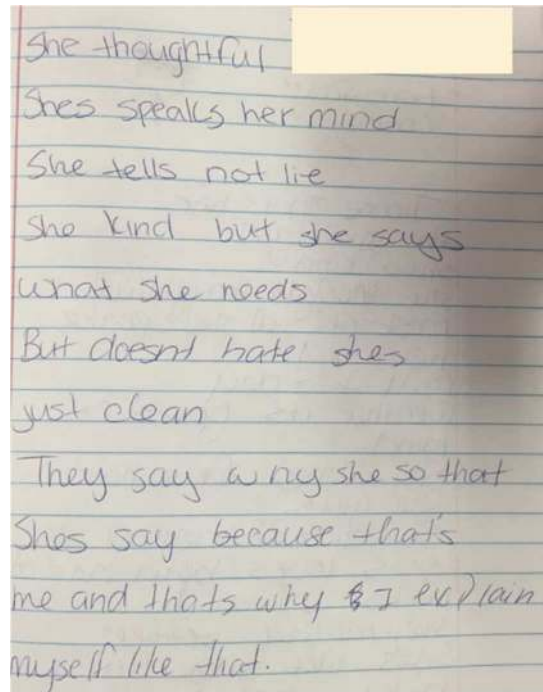 She thoughtful
Shes speaks her mind
She tells not lie
She kind but she says
what she needs
But doesnt hate shes
just clean
They say why she so that
Shes say because that's
me and thats why I explain
myself like that.